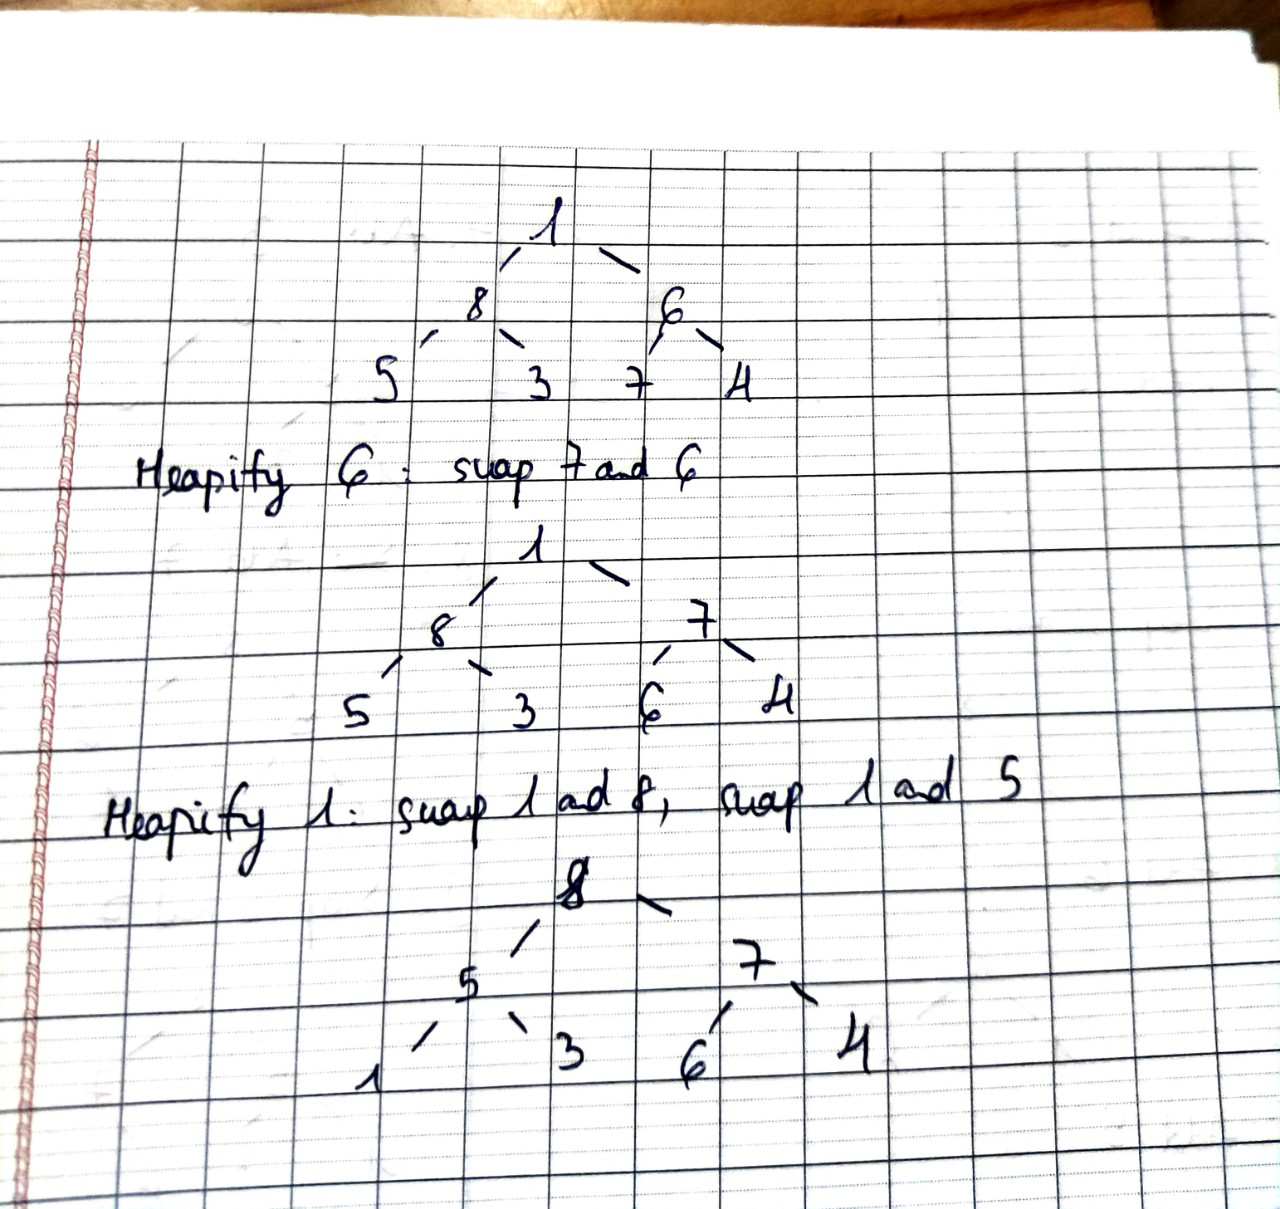 1
8 6
5 3 7 4
Heapify 6 : swap 7 and 6
1
8 7
5 3 6 4
Heapify 1: swap 1 and 8, swap 1 and 5
8
5 7
1 3 6 4